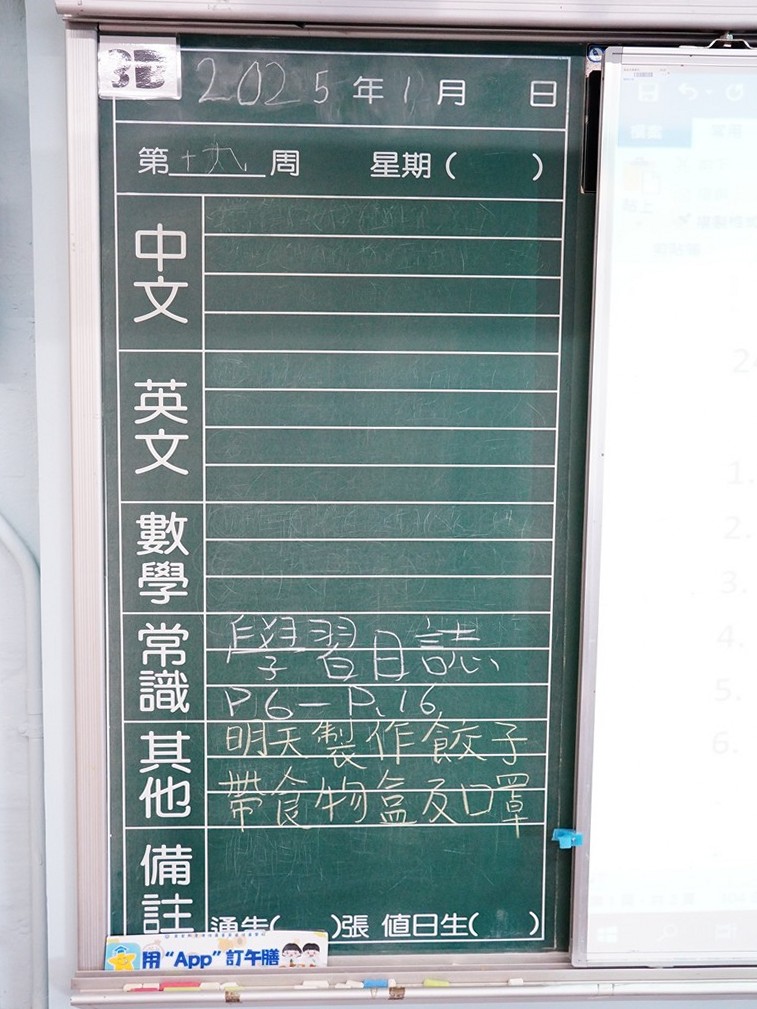 3B
2025年1月 日
第十九周 星期( )
中文
英文
數學
常識
學習日誌
P.6-P.16
其他
明天製作餃子
帶食物盒及口罩
備註
通告( )張 值日生( )
用“App”訂午膳
1.
2.
3.
4.
5.
6.